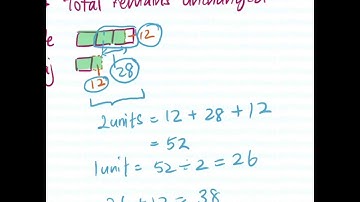 Total remains unchanged
12
28
12
2 units = 12 + 28 + 12
= 52
1 unit = 52 ÷ 2 = 26
26 + 12 = 38